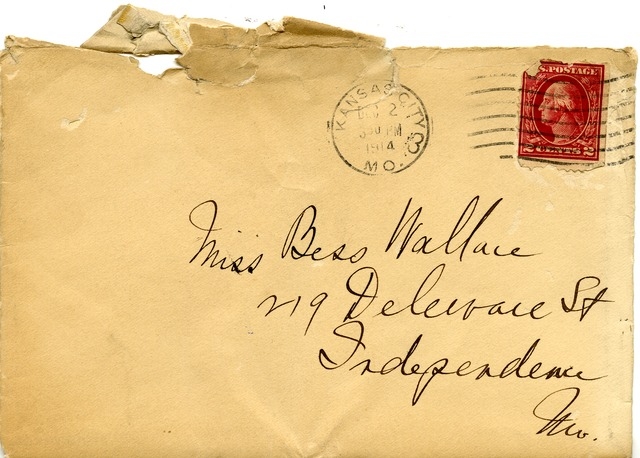 KANSAS CITY
2
1914
MO.
U.S. POSTAGE
2 2
Miss Bess Wallace
219 Delaware St
Independence
Mo.